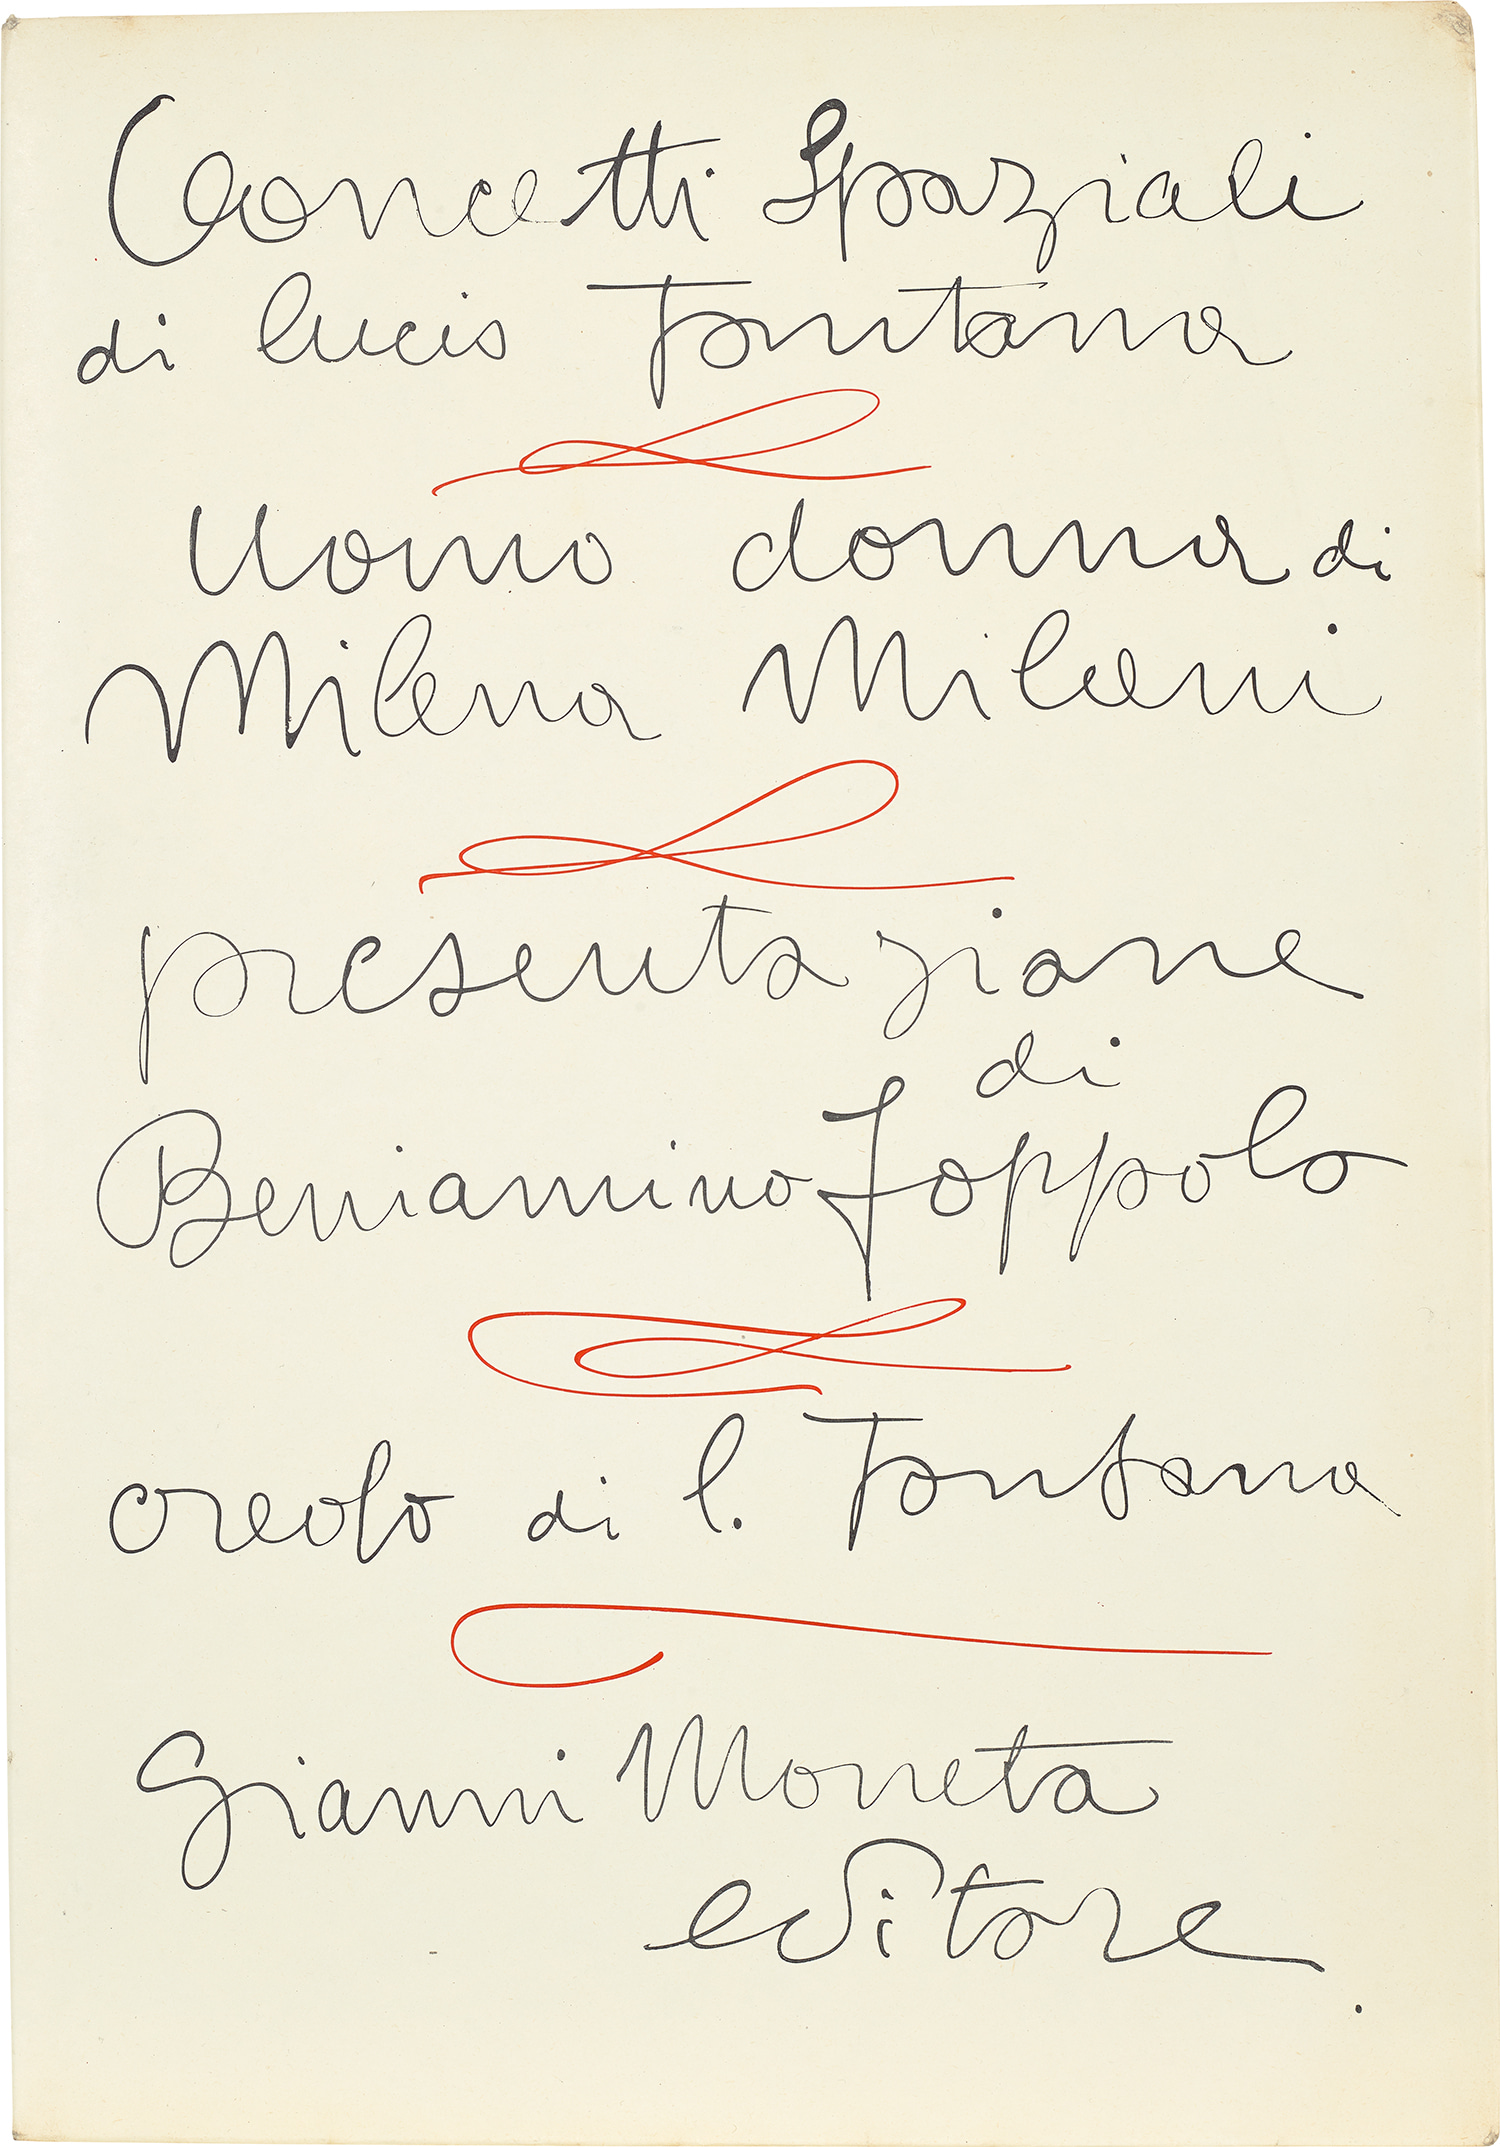 Concetti Spaziali
di lucio Fontana
Uomo donna di
Milena Milani
presentazione
di
Beniamino Joppolo
creolo di l. Fontana
Gianni Moneta
editore